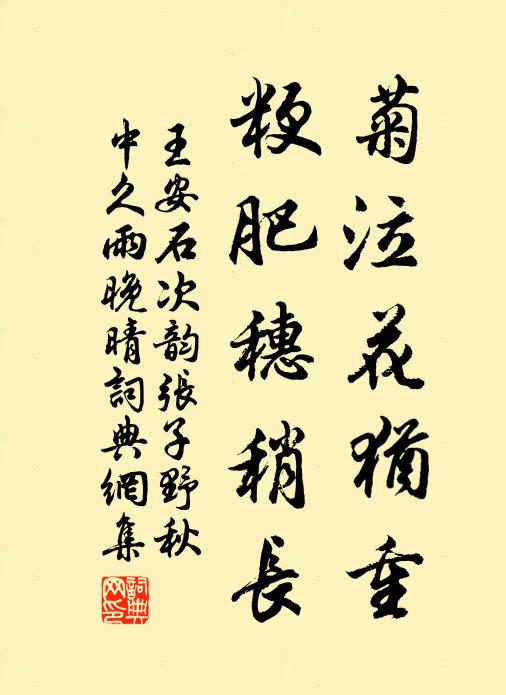 菊泣花猶重
粳肥穗稍長
王安石次韵張子野秋
中久雨晚晴詞典網集
詞典網印